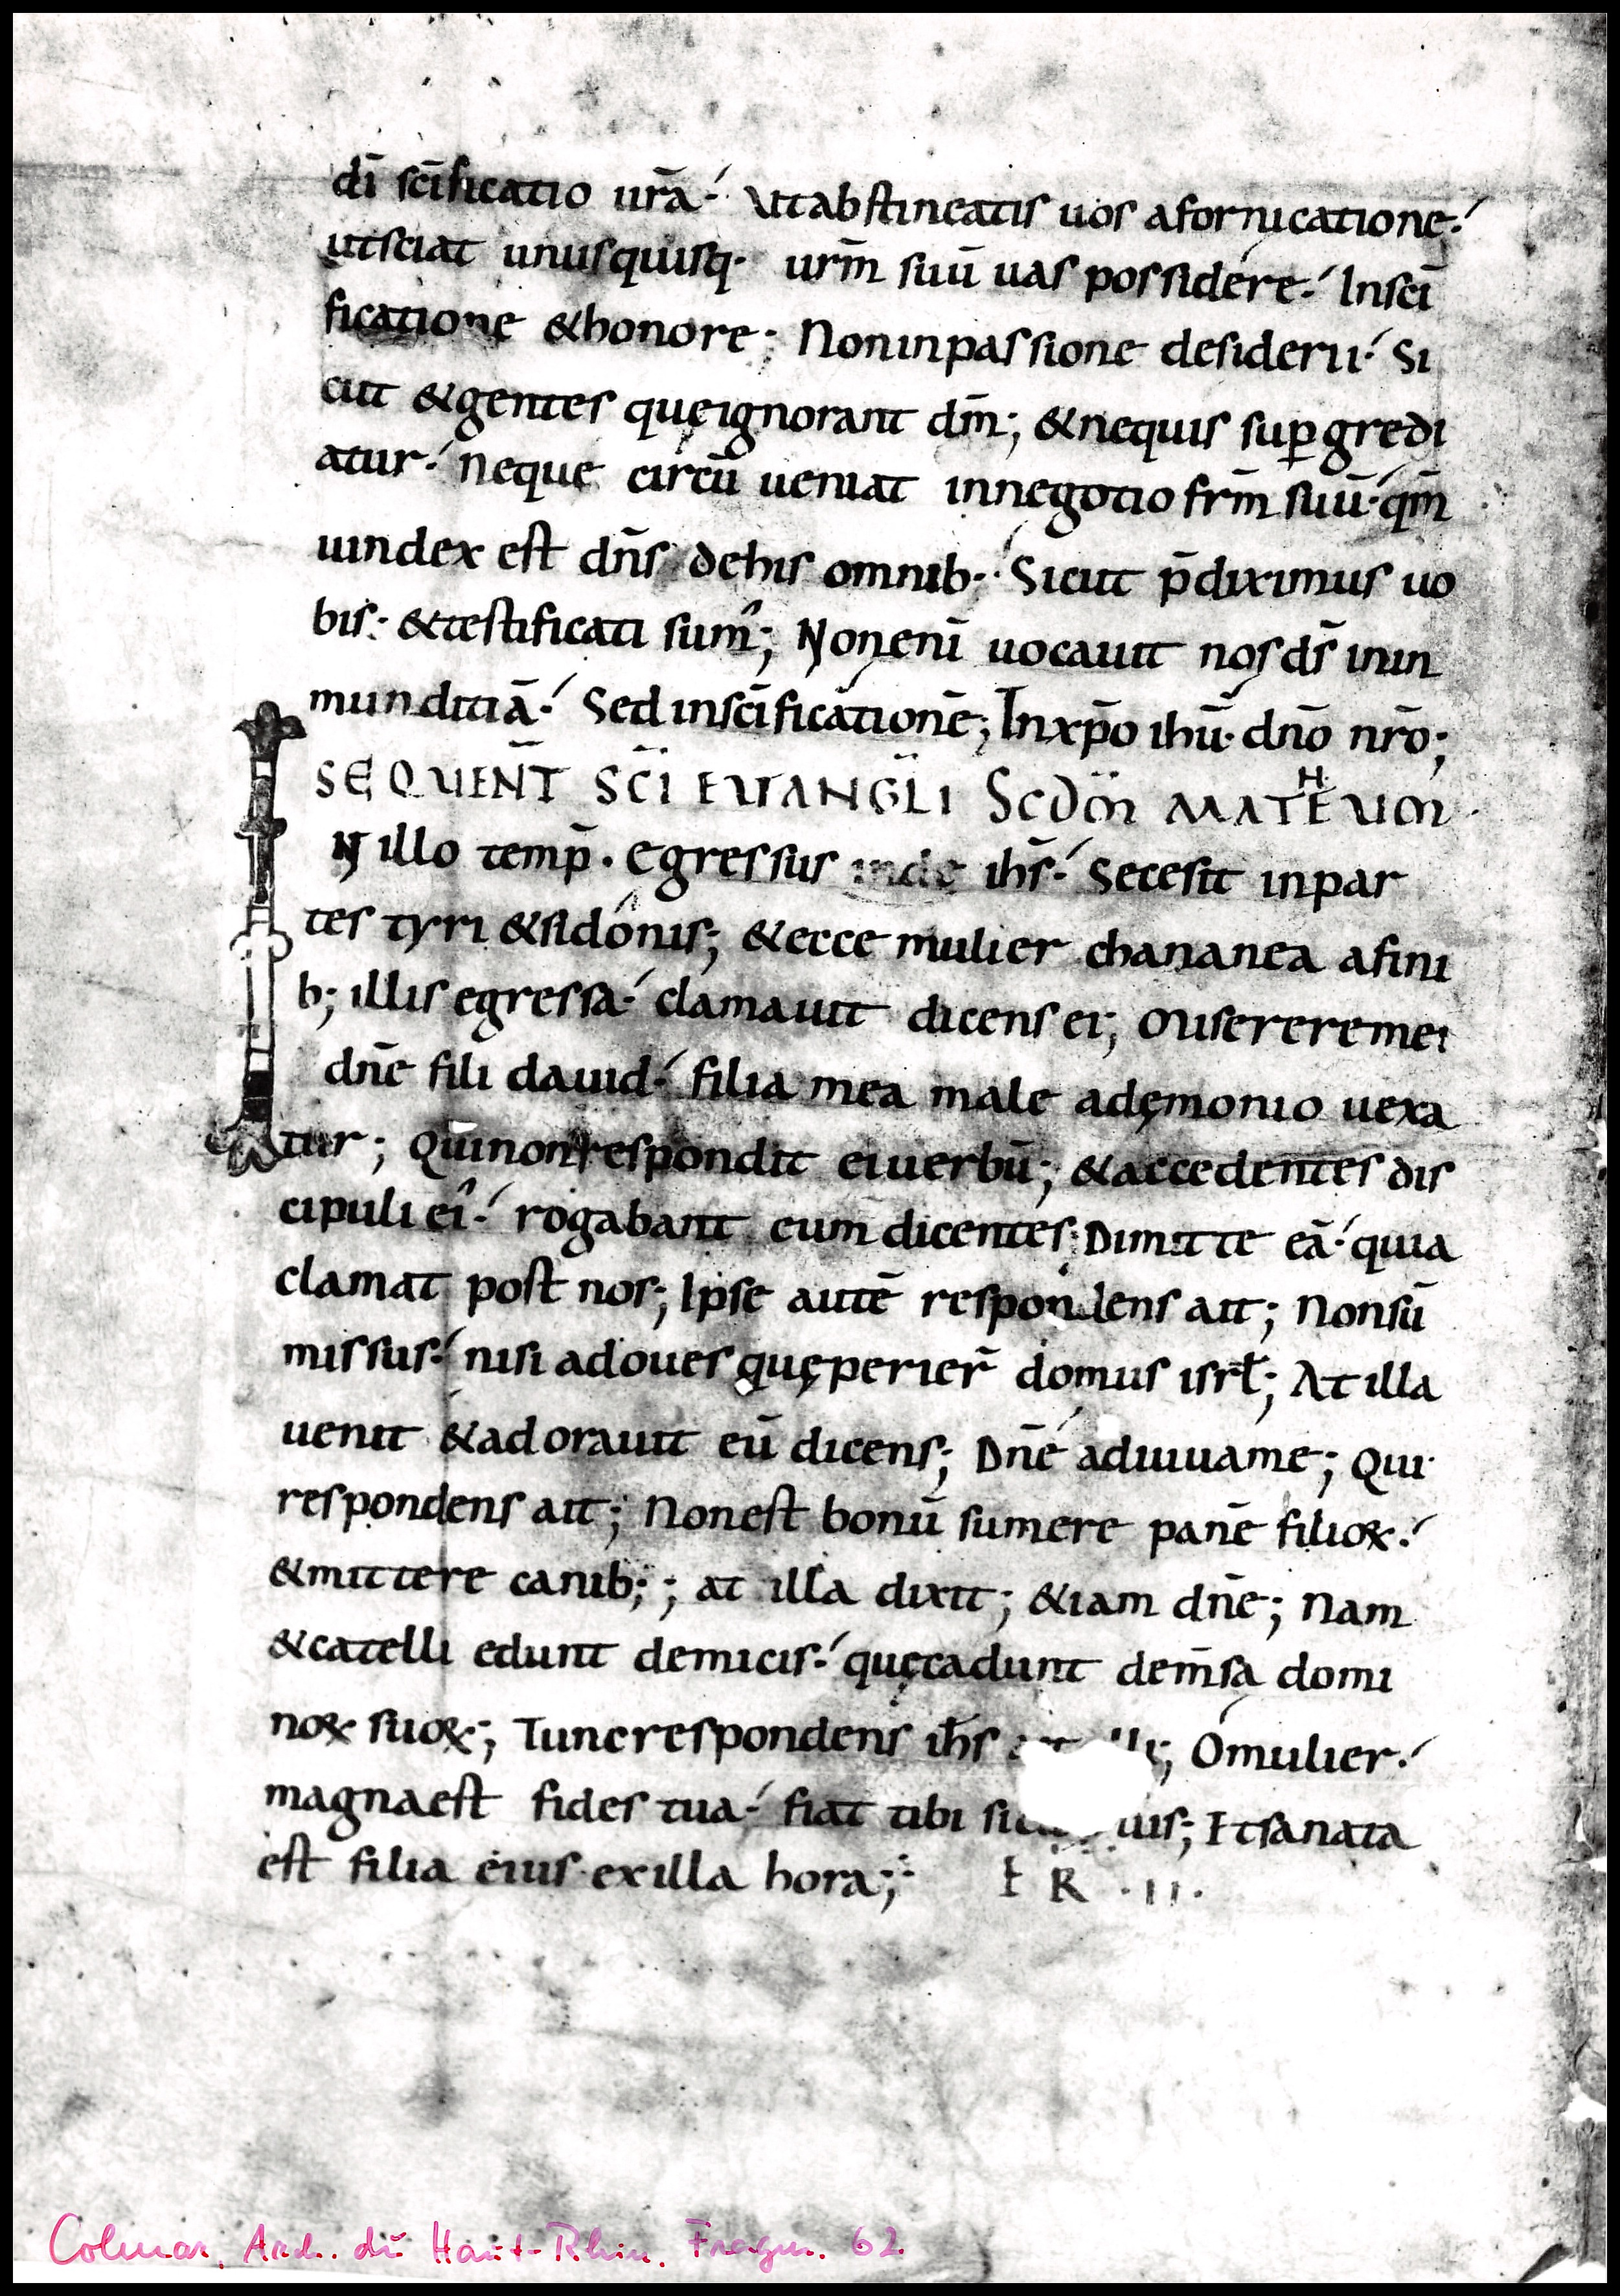 dī scīficatio ur̄a· Ut abstineatis uos afornicatione·
utsciat unusquisq· ur̄m suū uas possidere· Inscī
ficatione &honore; Noninpassione desiderii· Si
cut &gentes quęignorant dm̄; &nequis suꝑgredi
atur· neque circū ueniat innegotio fr̄m suū· qm̄
uindex est dn̄s dehis omnib·· Sicut p̄diximus uo
bis· &testificati sum᾽; Nonenī uocauit nos ds̄ inin
munditiā· Sed inscīficationē; Inxp̄o ihū· dn̄o nr̄o;
SEQUEN̄T SC̄I EUANGL̄I SCDM̄ MATHEUM·
IN illo temp̄· Egressus inde ihs̄· Secesit inpar
tes tyri &sidonis; &ecce mulier chananea afini
b; illis egressa· clamauit dicens ei; Misereremei
dn̄e fili dauid· filia mea male adęmonio uexa
tur; Quinonrespondit eiuerbū; &accedentes dis
cipuli ei᾽· rogabant eum dicentes; Dimitte eā· quia
clamat post nos; Ipse autē respondens ait; Nonsū
missus· nisi adoues quęperier̄ domus isrł; At illa
uenit &adorauit eū dicens; Dn̄e adiuuame; Qui
respondens ait; Nonest bonū sumere panē filioꝝ·
&mittere canib;; at illa dixit; &iam dn̄e; Nam
&catelli edunt demicis· quęcadunt dem̄sa domi
noꝝ suoꝝ; Tuncrespondens ih̄s Omulier·
magnaest fides tua· fiat tibi uis; Etsanata
est filia eius· exilla hora;· F R ·II·
Colmar, Arch. du Haut-Rhin, Fragm. 62